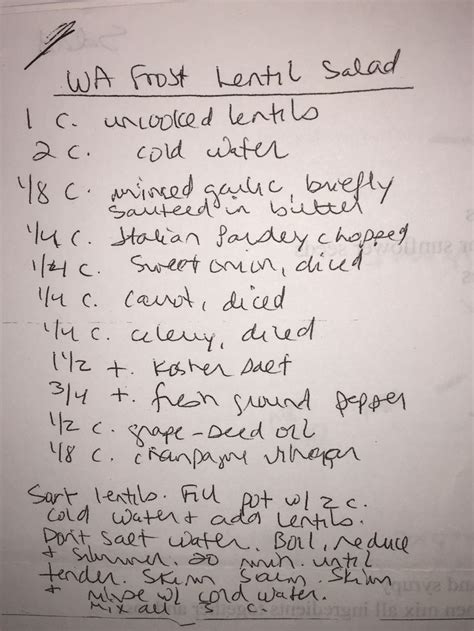 WA Frost Lentil Salad
1 c. uncooked lentils
2 c. cold water
1/8 c. minced garlic, briefly
sauteed in butter
1/4 c. Italian Parsley chopped
1/4 c. Sweet onion, diced
1/4 c. carrot, diced
1/4 c. celery, diced
1 1/2 t. Kosher salt
3/4 t. fresh ground pepper
1/2 c. grape-seed oil
1/8 c. champagne vinegar
Sort lentils. Fill pot w/ 2 c.
cold water + add lentils.
Don't salt water. Boil, reduce
+ simmer. 20 min. until
tender. Skim
+ rinse w/ cold water.
Mix all